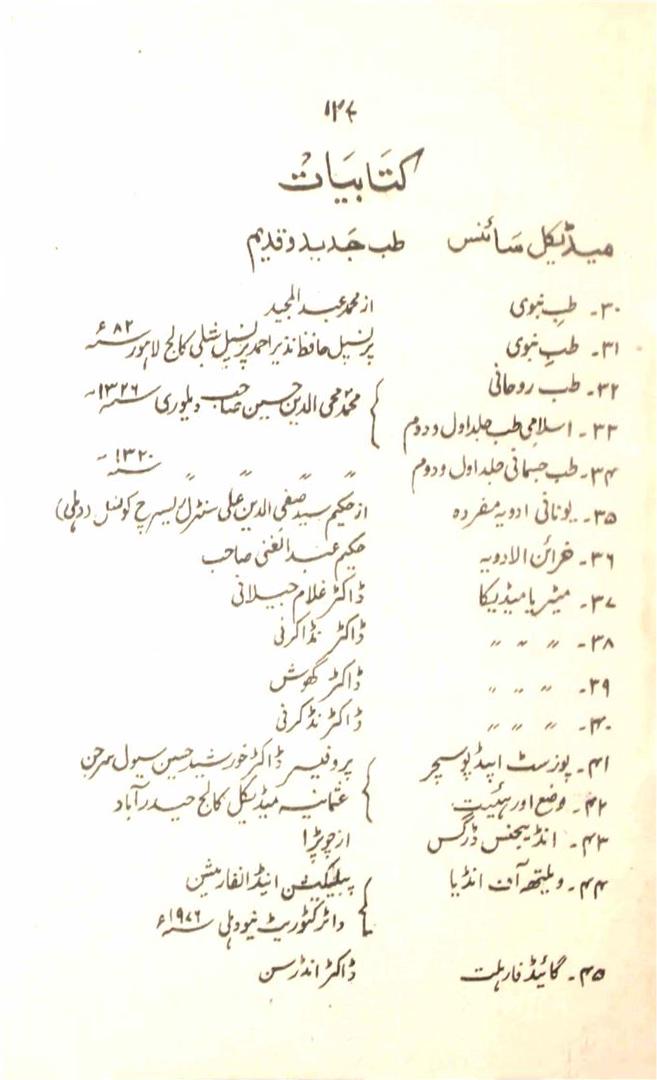 ۱۴۷
کتابیات
میڈیکل سائنس طب جدید و قدیم
۳۰۔ طبِ نبوی از محمد عبد المجید
۳۱۔ طبِ نبوی پرنسپل حافظ نذیر احمد پرنسپل شبلی کالج لاہور سنہ ۸۲ء
۳۲۔ طب روحانی
محمد محی الدین حسین صاحب ویلوری سنہ ۱۳۲۶
۳۳۔ اسلامی طب جلد اول و دوم
۳۴۔ طب جسمانی جلد اول و دوم " " " " سنہ ۱۳۲۰
۳۵۔ یونانی ادویہ مفردہ از حکیم سید صفی الدین علی سنٹرل ریسرچ کونسل (دہلی)
۳۶۔ خزائن الادویہ حکیم عبد الغنی صاحب
۳۷۔ میٹریا میڈیکا ڈاکٹر غلام جیلانی
۳۸۔ " " " ڈاکٹر نڈاکرنی
۳۹۔ " " " ڈاکٹر گھوش
۴۰۔ " " " ڈاکٹر نڈکرنی
۴۱۔ پوزسٹ اینڈ پوسچر پروفیسر ڈاکٹر خورشید حسین سیول سرجن
۴۲۔ وضع اور ہئیت عثمانیہ میڈیکل کالج حیدرآباد
۴۳۔ انڈیجنس ڈرگس از چوپڑا
۴۴۔ ویلتھ آف انڈیا پبلیکیشن اینڈ انفارمیشن
ڈائرکٹوریٹ نیو دہلی سنہ ۱۹۷۶ء
۴۵۔ گائیڈ فار ہلت ڈاکٹر انڈرسن